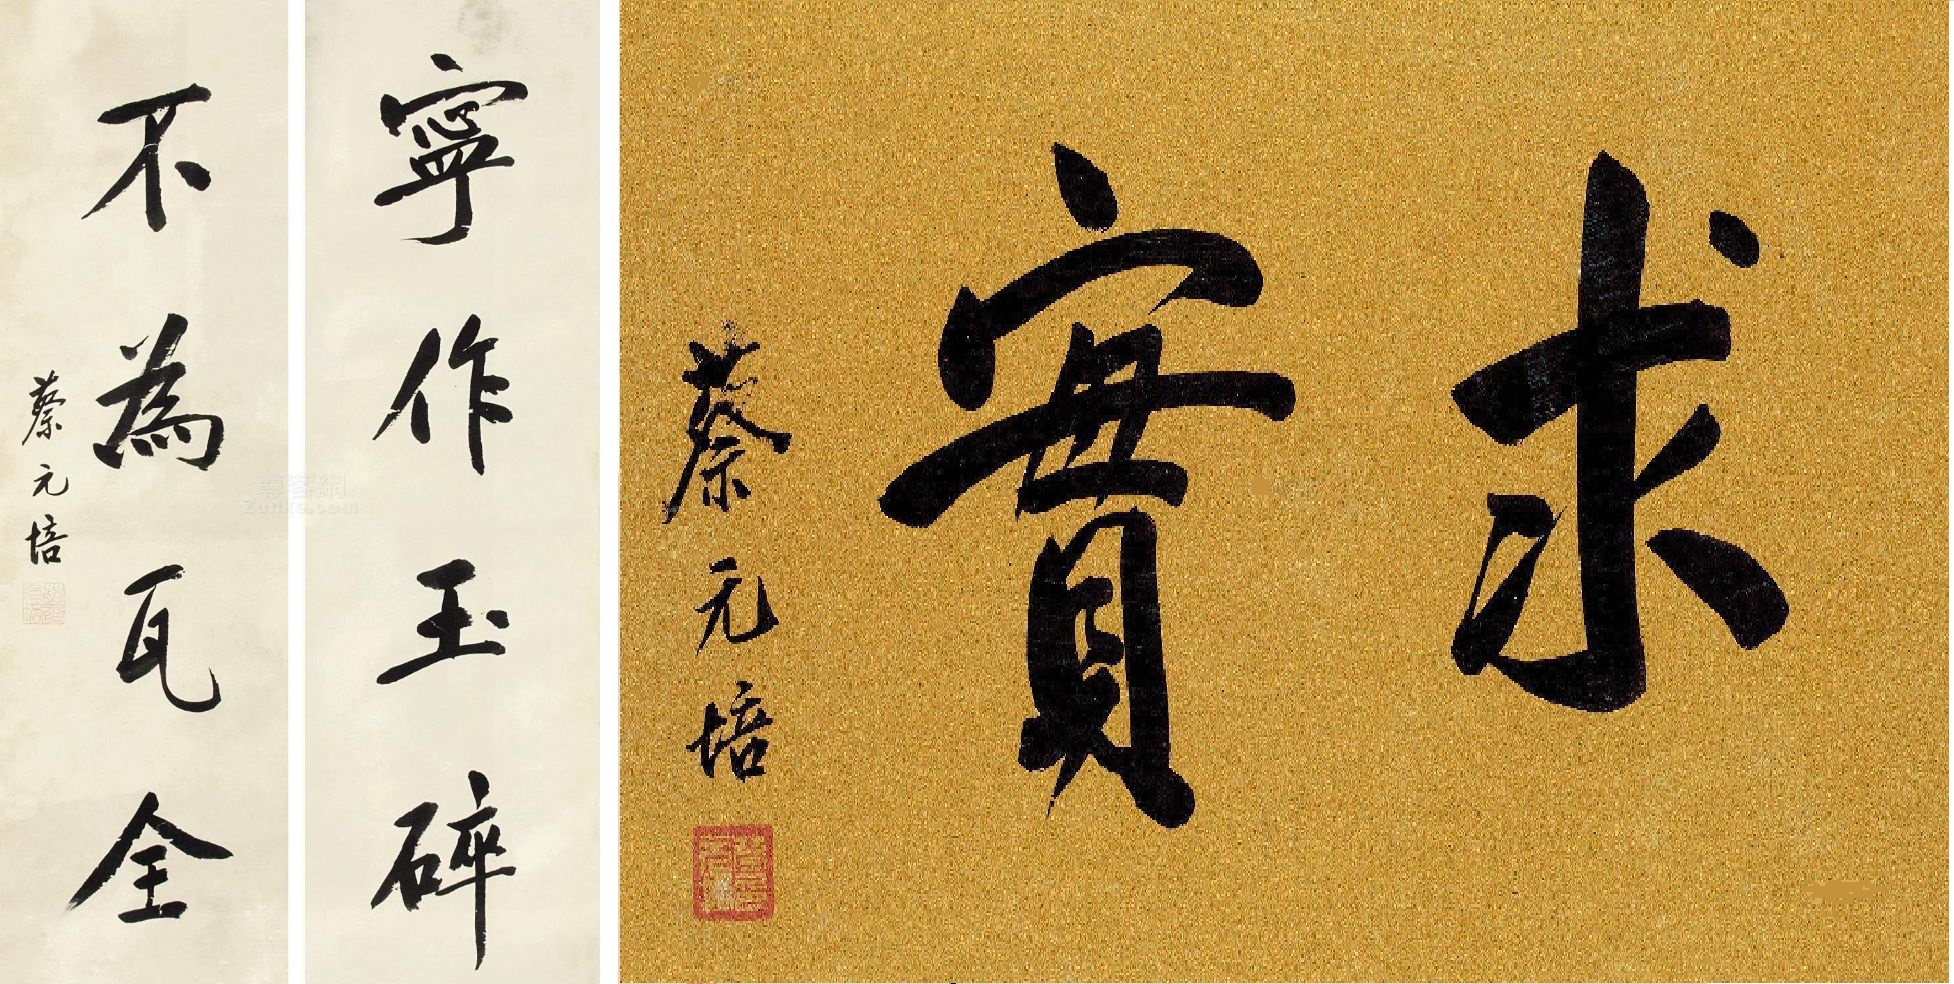 寧作玉碎
不為瓦全
蔡元培
尊客網
Zunke.com
求實
蔡元培